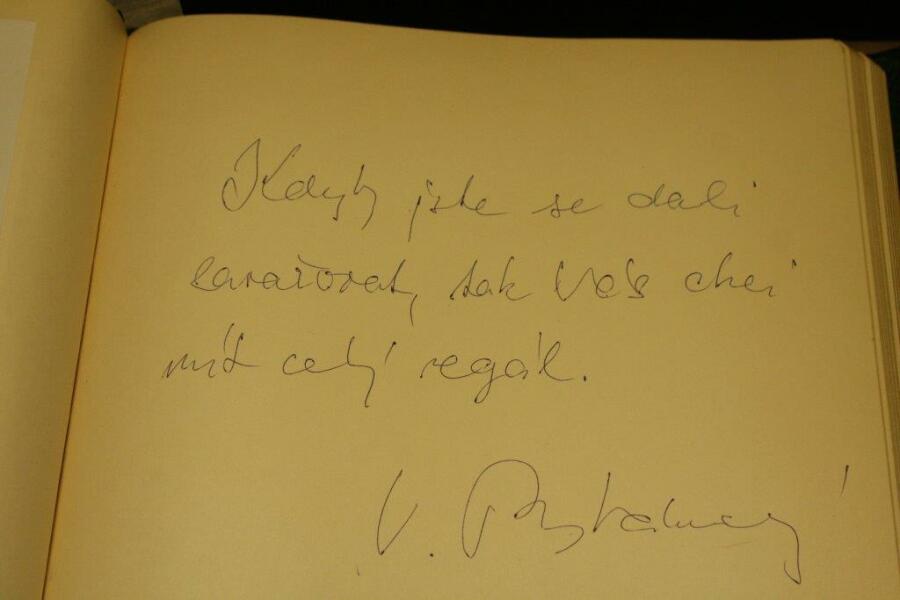 Kdyby jste se dali
zavařovat, tak Vás chci
mít celý regál.
V.